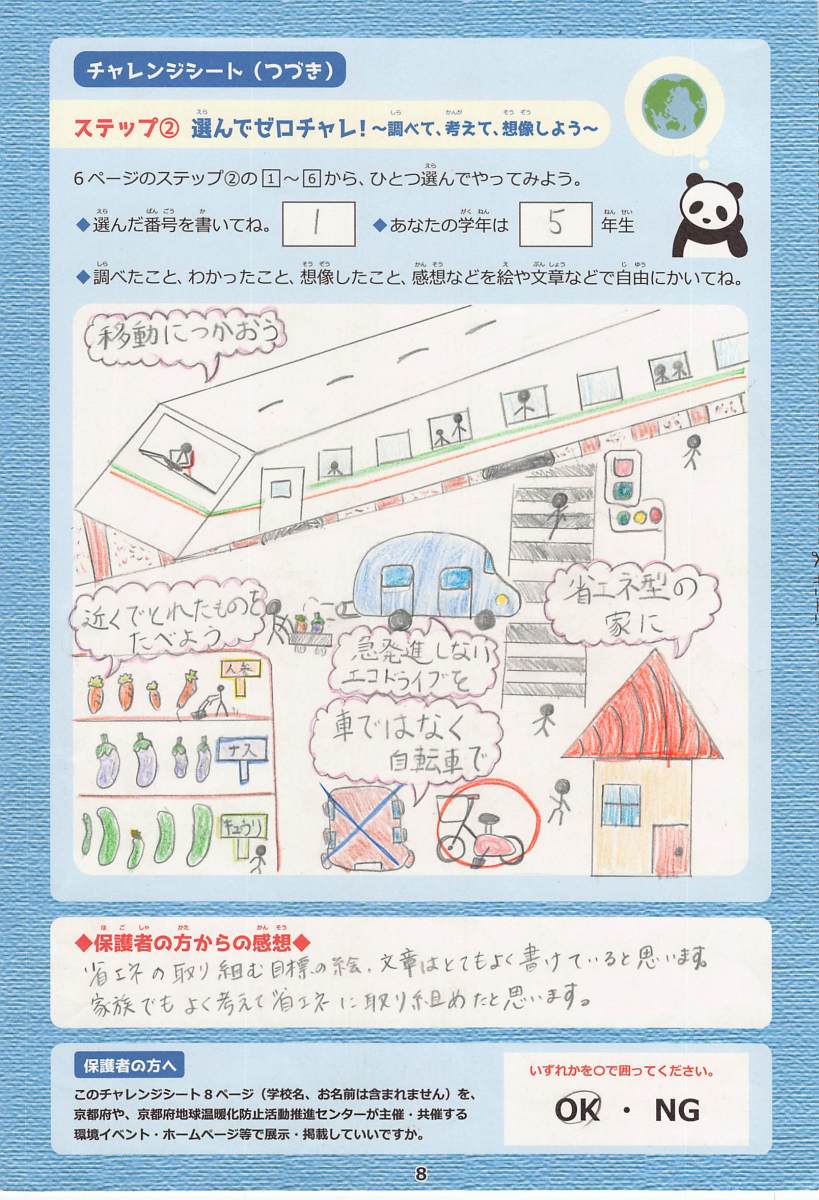 チャレンジシート（つづき）
ステップ② 選んでゼロチャレ！～調べて、考えて、想像しよう～
6ページのステップ②の1～6から、ひとつ選んでやってみよう。
◆選んだ番号を書いてね。 1 ◆あなたの学年は 5 年生
◆調べたこと、わかったこと、想像したこと、感想などを絵や文章などで自由にかいてね。
移動につかおう
近くでとれたものを
たべよう
急発進しない
エコドライブを
省エネ型の
家に
車ではなく
自転車で
人参
ナス
キュウリ
◆保護者の方からの感想◆
省エネの取り組む目標の絵、文章はとてもよく書けていると思います。
家族でもよく考えて省エネに取り組めたと思います。
保護者の方へ
このチャレンジシート8ページ（学校名、お名前は含まれません）を、
京都府や、京都府地球温暖化防止活動推進センターが主催・共催する
環境イベント・ホームページ等で展示・掲載していいですか。
いずれかを○で囲ってください。
OK ・ NG
8